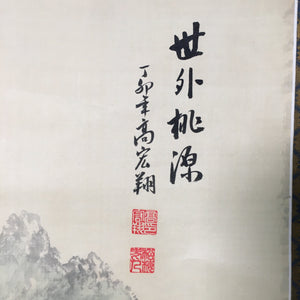 世外桃源
丁卯年高宏翔